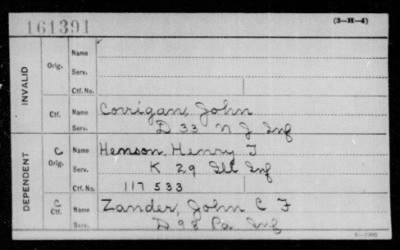 161391
(3-H-4)
INVALID
Orig.
Name
Serv.
Ctf. No.
Ctf.
Name Corrigan, John
Serv. D 33 N J Inf
DEPENDENT
C
Orig.
Name Henson, Henry T
Serv. K 29 Ill Inf
Ctf. No. 117 533
C
Ctf.
Name Zander, John C F
Serv. D 98 Pa Inf